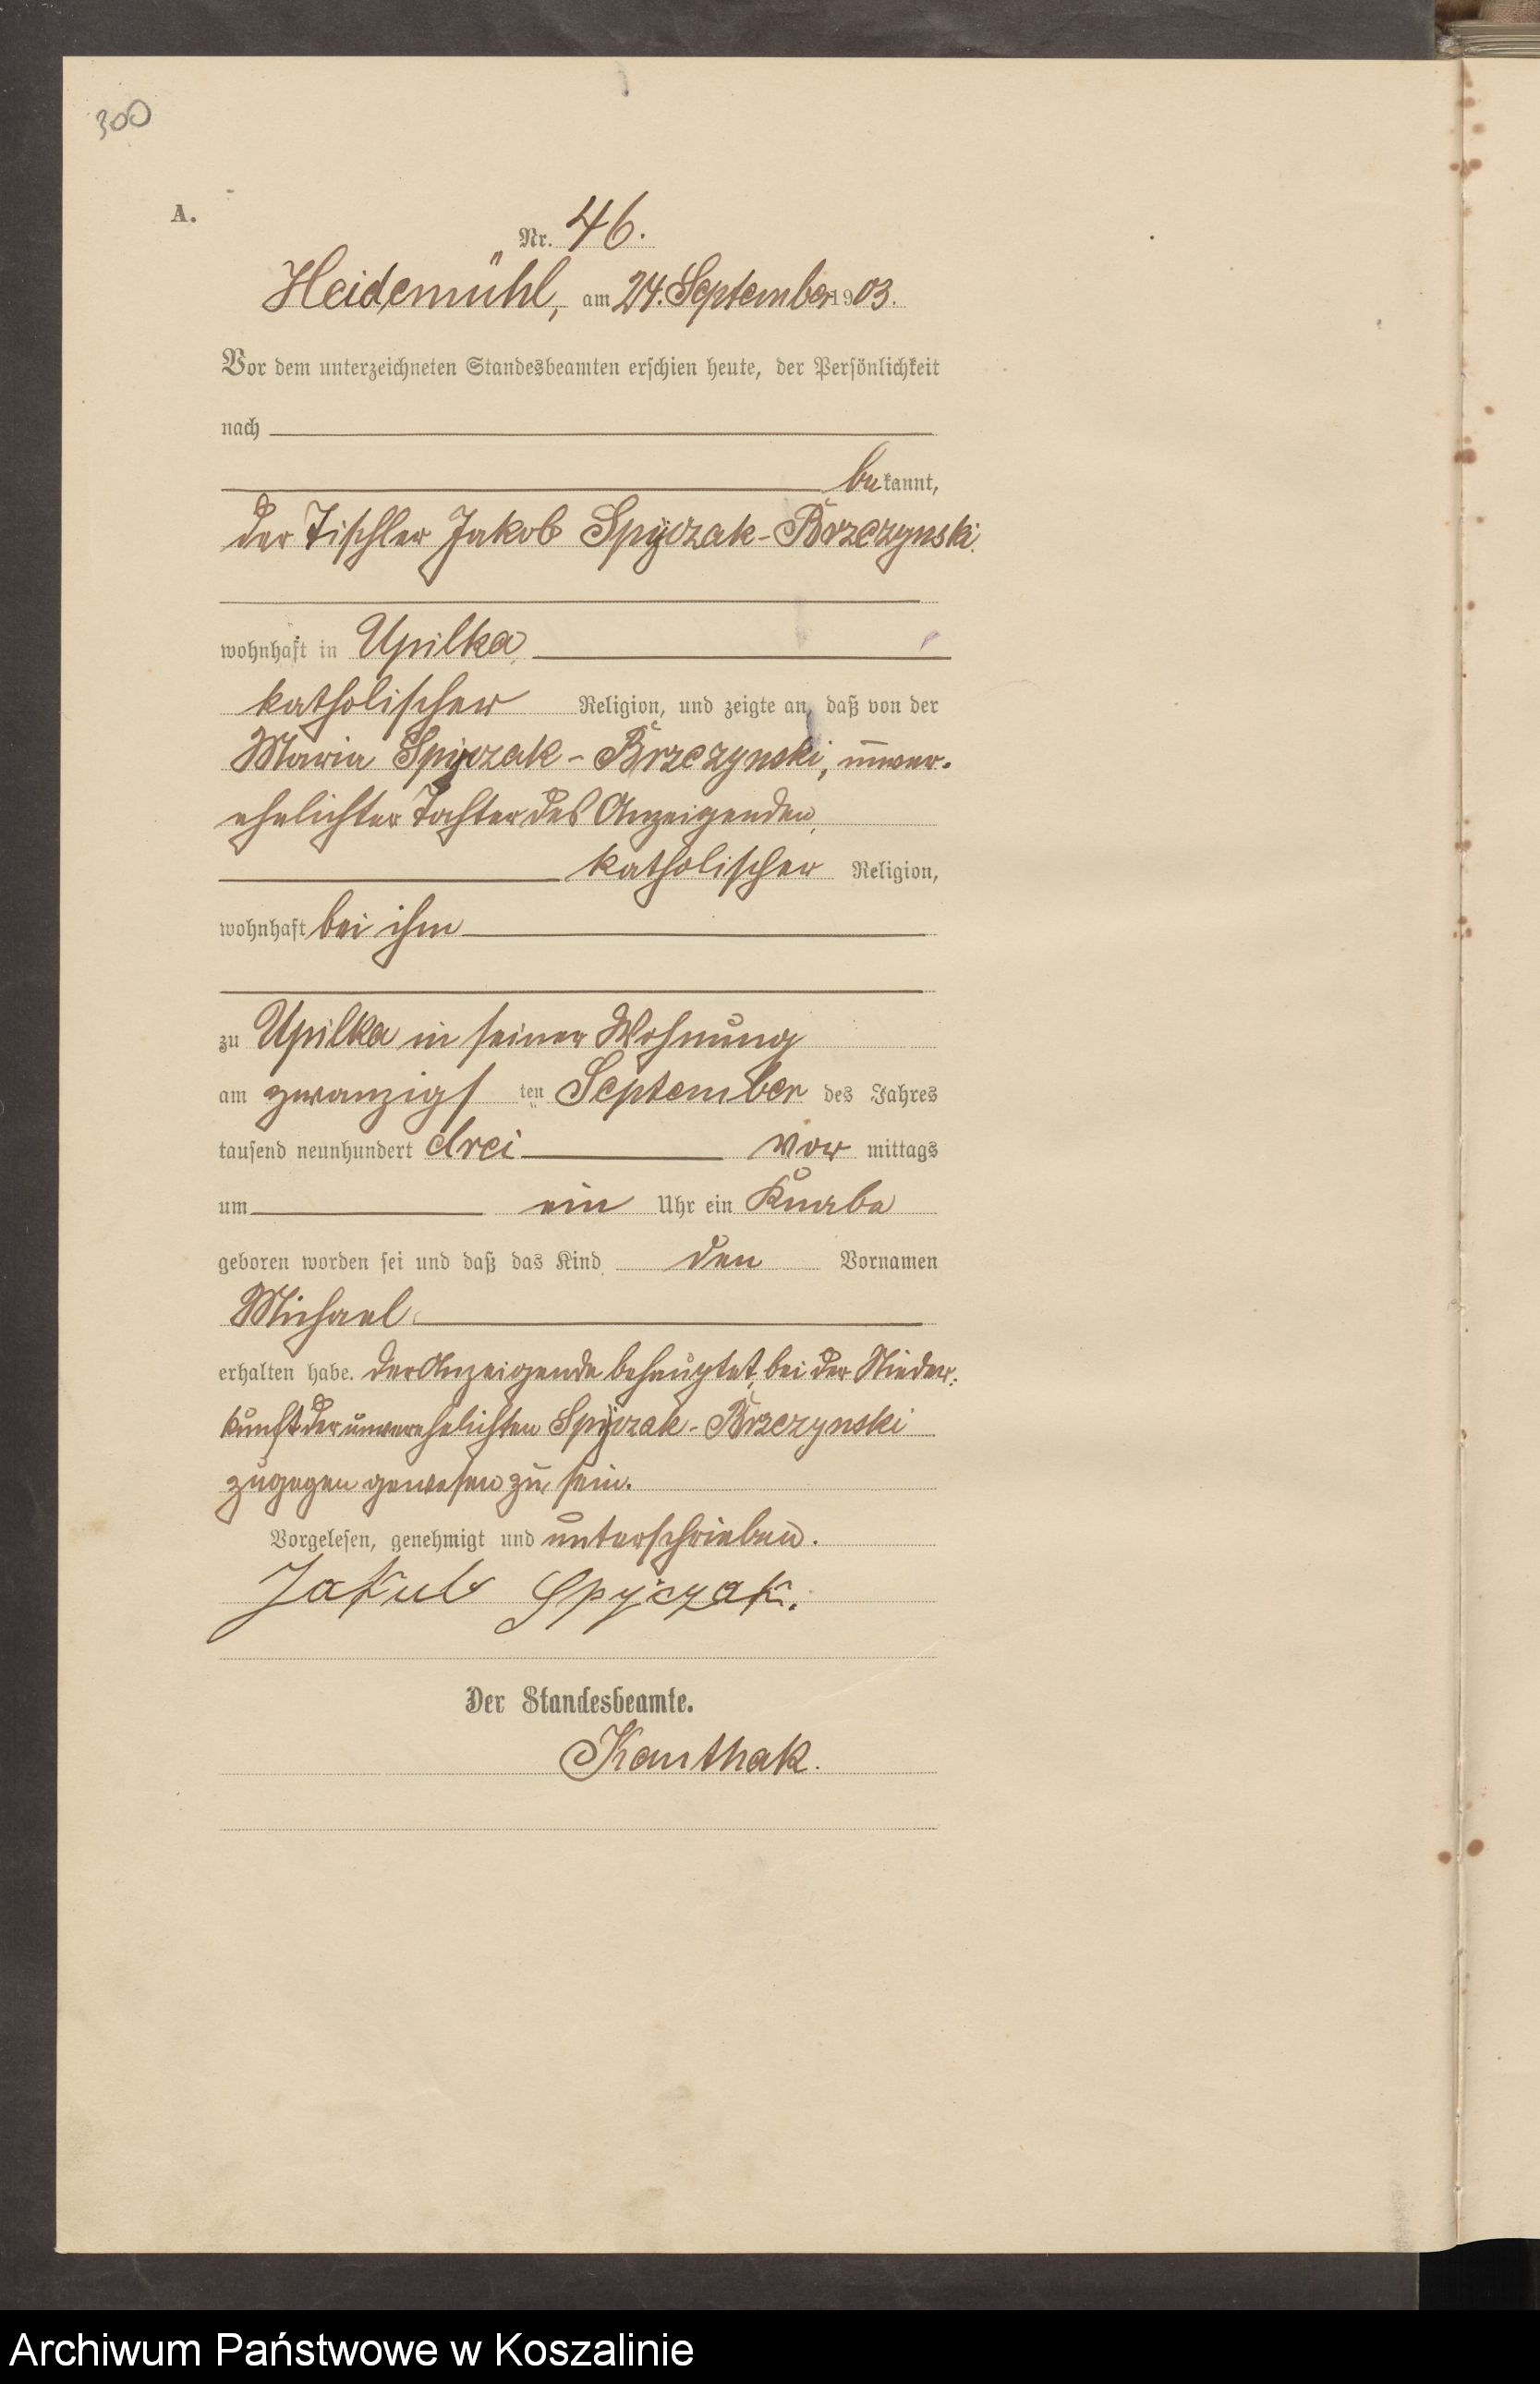 300
A.
Nr. 46.
Heidemühl, am 24. September 1903.
Vor dem unterzeichneten Standesbeamten erschien heute, der Persönlichkeit
nach
bekannt,
der Tischler Jakob Spyczak-Brzezynski
wohnhaft in Upilka,
katholischer Religion, und zeigte an, daß von der
Maria Spyczak-Brzezynski, unver-
ehelichter Tochter des Anzeigenden,
katholischer Religion,
wohnhaft bei ihm
zu Upilka in seiner Wohnung
am zwanzigsten September des Jahres
tausend neunhundert drei vor mittags
um ein Uhr ein Knabe
geboren worden sei und daß das Kind den Vornamen
Michael
erhalten habe. Der Anzeigende behauptet, bei der Nieder-
kunft der unverehelichten Spyczak-Brzezynski
zugegen gewesen zu sein.
Vorgelesen, genehmigt und unterschrieben.
Jakub Spyczak.
Der Standesbeamte.
Kanthak.
Archiwum Państwowe w Koszalinie